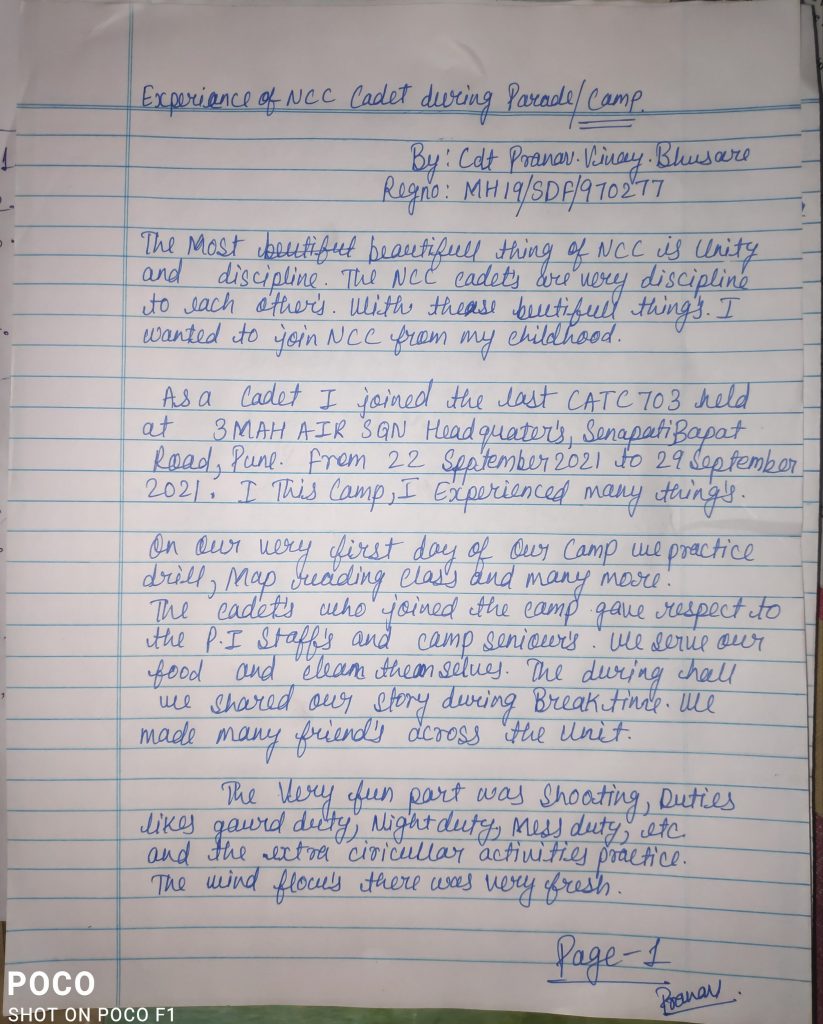 Experiance of NCC Cadet during Parade/Camp.
By: Cdt Pranav. Vinay. Bhusare
Regno: MH19/SDF/970277
The Most beutiful beautifull thing of NCC is Unity
and discipline. The NCC cadet's are very discipline
to each other's. With thease beutifull thing's. I
wanted to join NCC from my childhood.
As a Cadet I joined the last CATC 703 held
at 3 MAH AIR SQN Headquater's, Senapati Bapat
Road, Pune. From 22 Spptember 2021 to 29 September
2021. I This Camp, I Experienced many thing's.
On our very first day of our Camp we practice
drill, Map reading class and many more.
The cadet's who joined the camp gave respect to
the P.I Staff's and camp seniour's. We serve our
food and clean themselves. The during hall
we shared our story during Break time. We
made many friend's across the Unit.
The Very fun part was Shooting, Duties
likes gaurd duty, Night duty, Mess duty, etc.
and the extra ciricullar activities practice.
The wind flow's there was very fresh.
Page-1
Pranav.
POCO
SHOT ON POCO F1